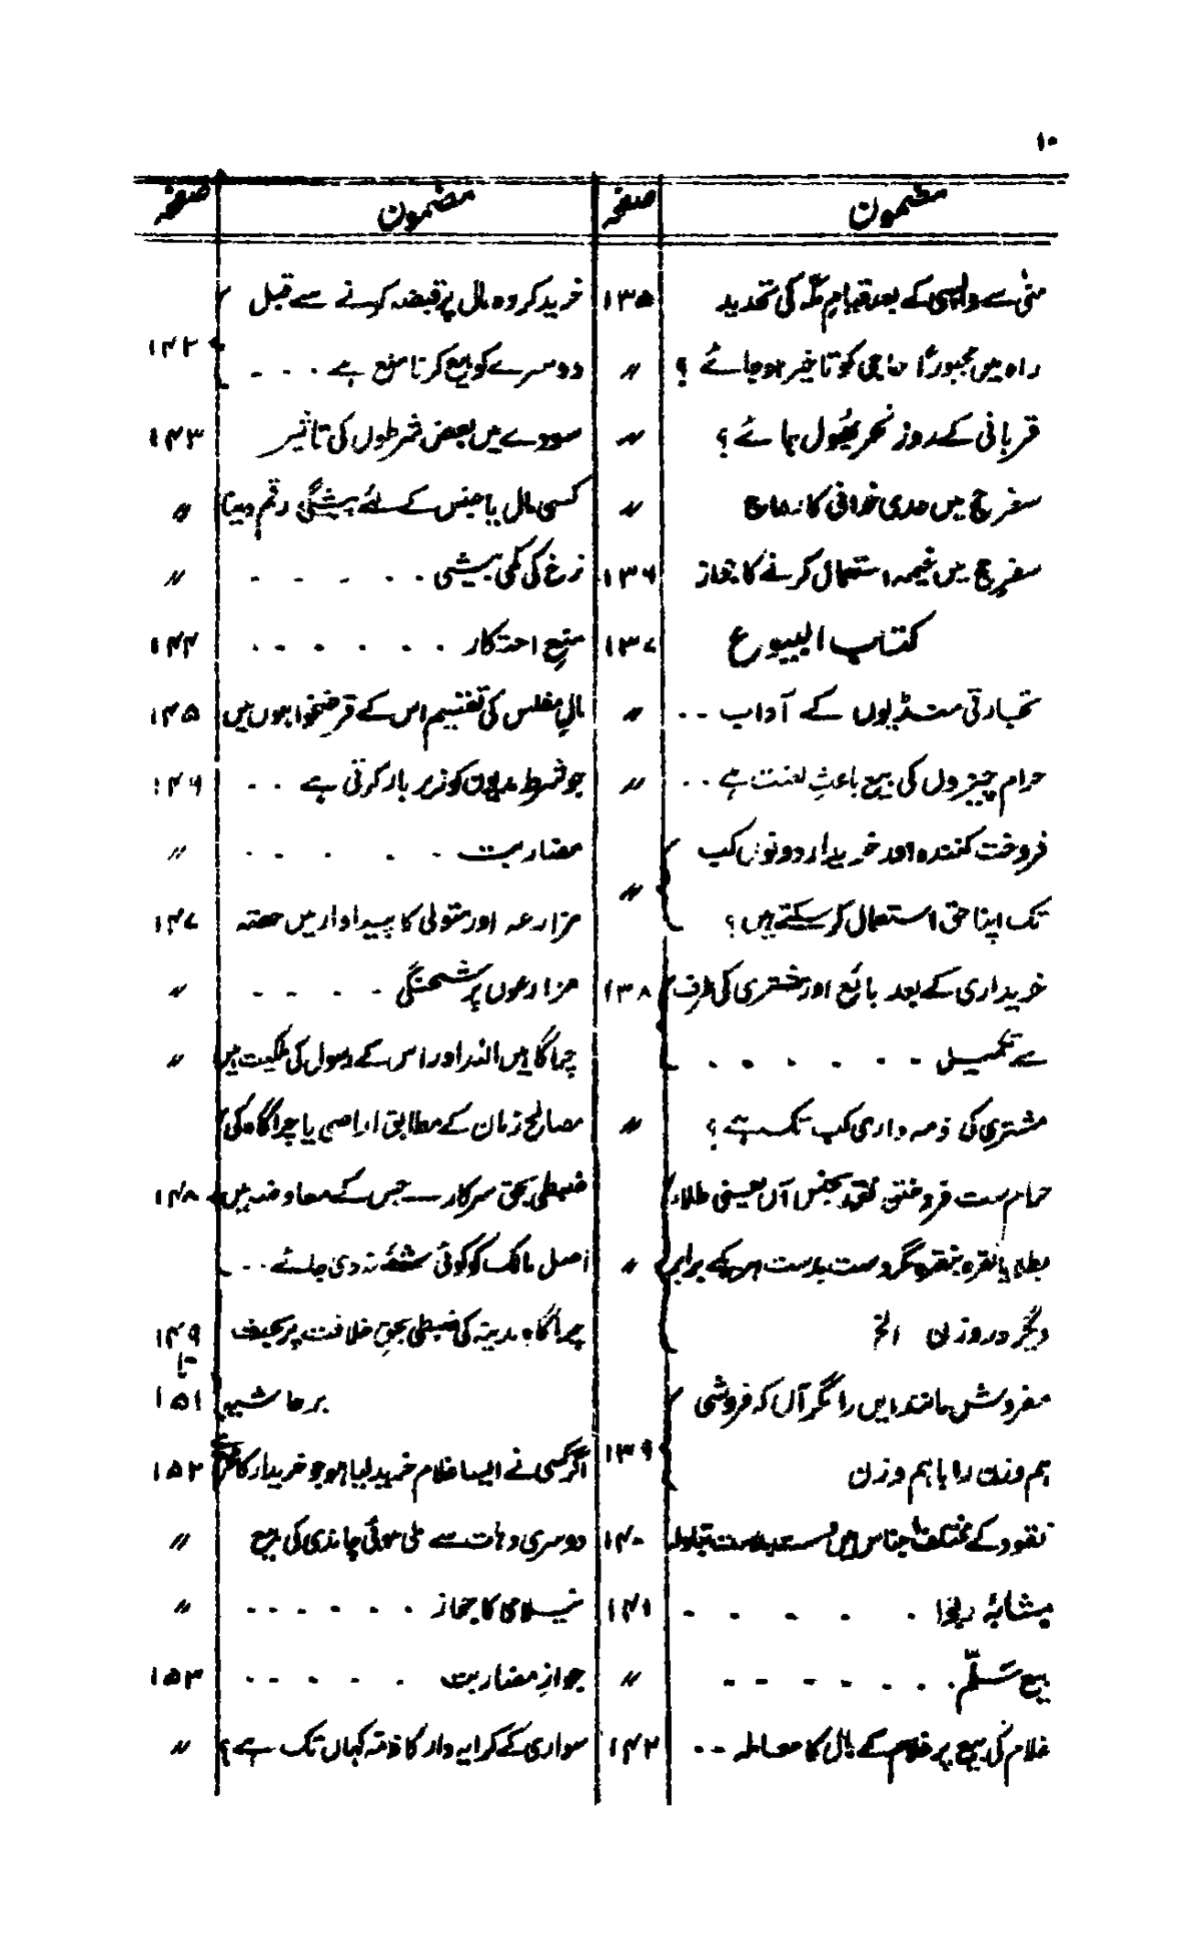 ۱۰
مضمون صفحہ
منیٰ سے واپسی کے بعد قیام مکہ کی تحدید ۱۳۵
راہ میں مجبوراً حاجی کو تاخیر ہو جائے ؟ 〃
قربانی کے روز نحر بھول جائے ؟ 〃
سفر حج میں حدی خوانی کا رواج 〃
سفر حج میں خیمہ استعمال کرنے کا جواز ۱۳۶
کتاب البیوع ۱۳۷
تجارتی منڈیوں کے آداب - - 〃
حرام چیزوں کی بیع باعثِ لعنت ہے - - 〃
فروخت کنندہ اور خریدار دونوں کب
تک اپنا حق استعمال کر سکتے ہیں ؟ 〃
خریداری کے بعد بائع اور مشتری کی طرف ۱۳۸
سے تکمیل - - - - - -
مشتری کی ذمہ داری کب تک ہے ؟ 〃
حرام ست فروختن نقد بجنس آں یعنی طلاء
بطلا یا نقرہ بنقرہ مگر دست بدست برابر 〃
دیگر در وزن الخ
مفروش مانند ایں را مگر آں کہ فروشی
ہم وزن را با ہم وزن ۱۳۹
نقود کے مختلف اجناس میں دست بدست تبادلہ ۱۴۰
مشابہ ربٰوا - - - - - ۱۴۱
بیع سَلَم - - - - - - - 〃
غلام کی بیع پر غلام کے مال کا معاملہ - - ۱۴۲
مضمون صفحہ
خرید کردہ مال پر قبضہ کرنے سے قبل
دوسرے کو بیع کرنا منع ہے - - - - ۱۴۲
سودے میں بعض شرطوں کی تاثیر ۱۴۳
کسی مال یا جنس کے لئے پیشگی رقم دینا 〃
نرخ کی کمی بیشی - - - - - - 〃
منع احتکار - - - - - - - ۱۴۴
مالِ مفلس کی تقسیم اس کے قرضخواہوں میں ۱۴۵
جو شرط مدیون کو زیر بار کرتی ہے - - ۱۴۶
مضاربت - - - - - 〃
مزارعہ اور متولی کا پیداوار میں حصہ ۱۴۷
مزارعوں پر شحنگی - - - - - 〃
چراگاہیں اللہ اور اس کے رسول کی ملکیت ہیں 〃
مصالح زمان کے مطابق اراضی یا چراگاہ کی
ضبطی بحق سرکار سے جس کے معاوضہ میں ۱۴۸
اصل مالک کو کوئی شے نہ دی جائے - - -
چراگاہ مدینہ کی ضبطی بحق خلافت پر بحث ۱۴۹
تا
بر حاشیہ ۱۵۱
اگر کسی نے ایسا غلام خرید لیا ہو جو خریدار کا ۱۵۲
دوسری دھات سے ملی ہوئی چاندی کی بیع 〃
نیلامی کا جواز - - - - - - 〃
جوازِ مضاربت - - - - - ۱۵۳
سواری کے کرایہ دار کا ذمہ کہاں تک ہے ؟ 〃